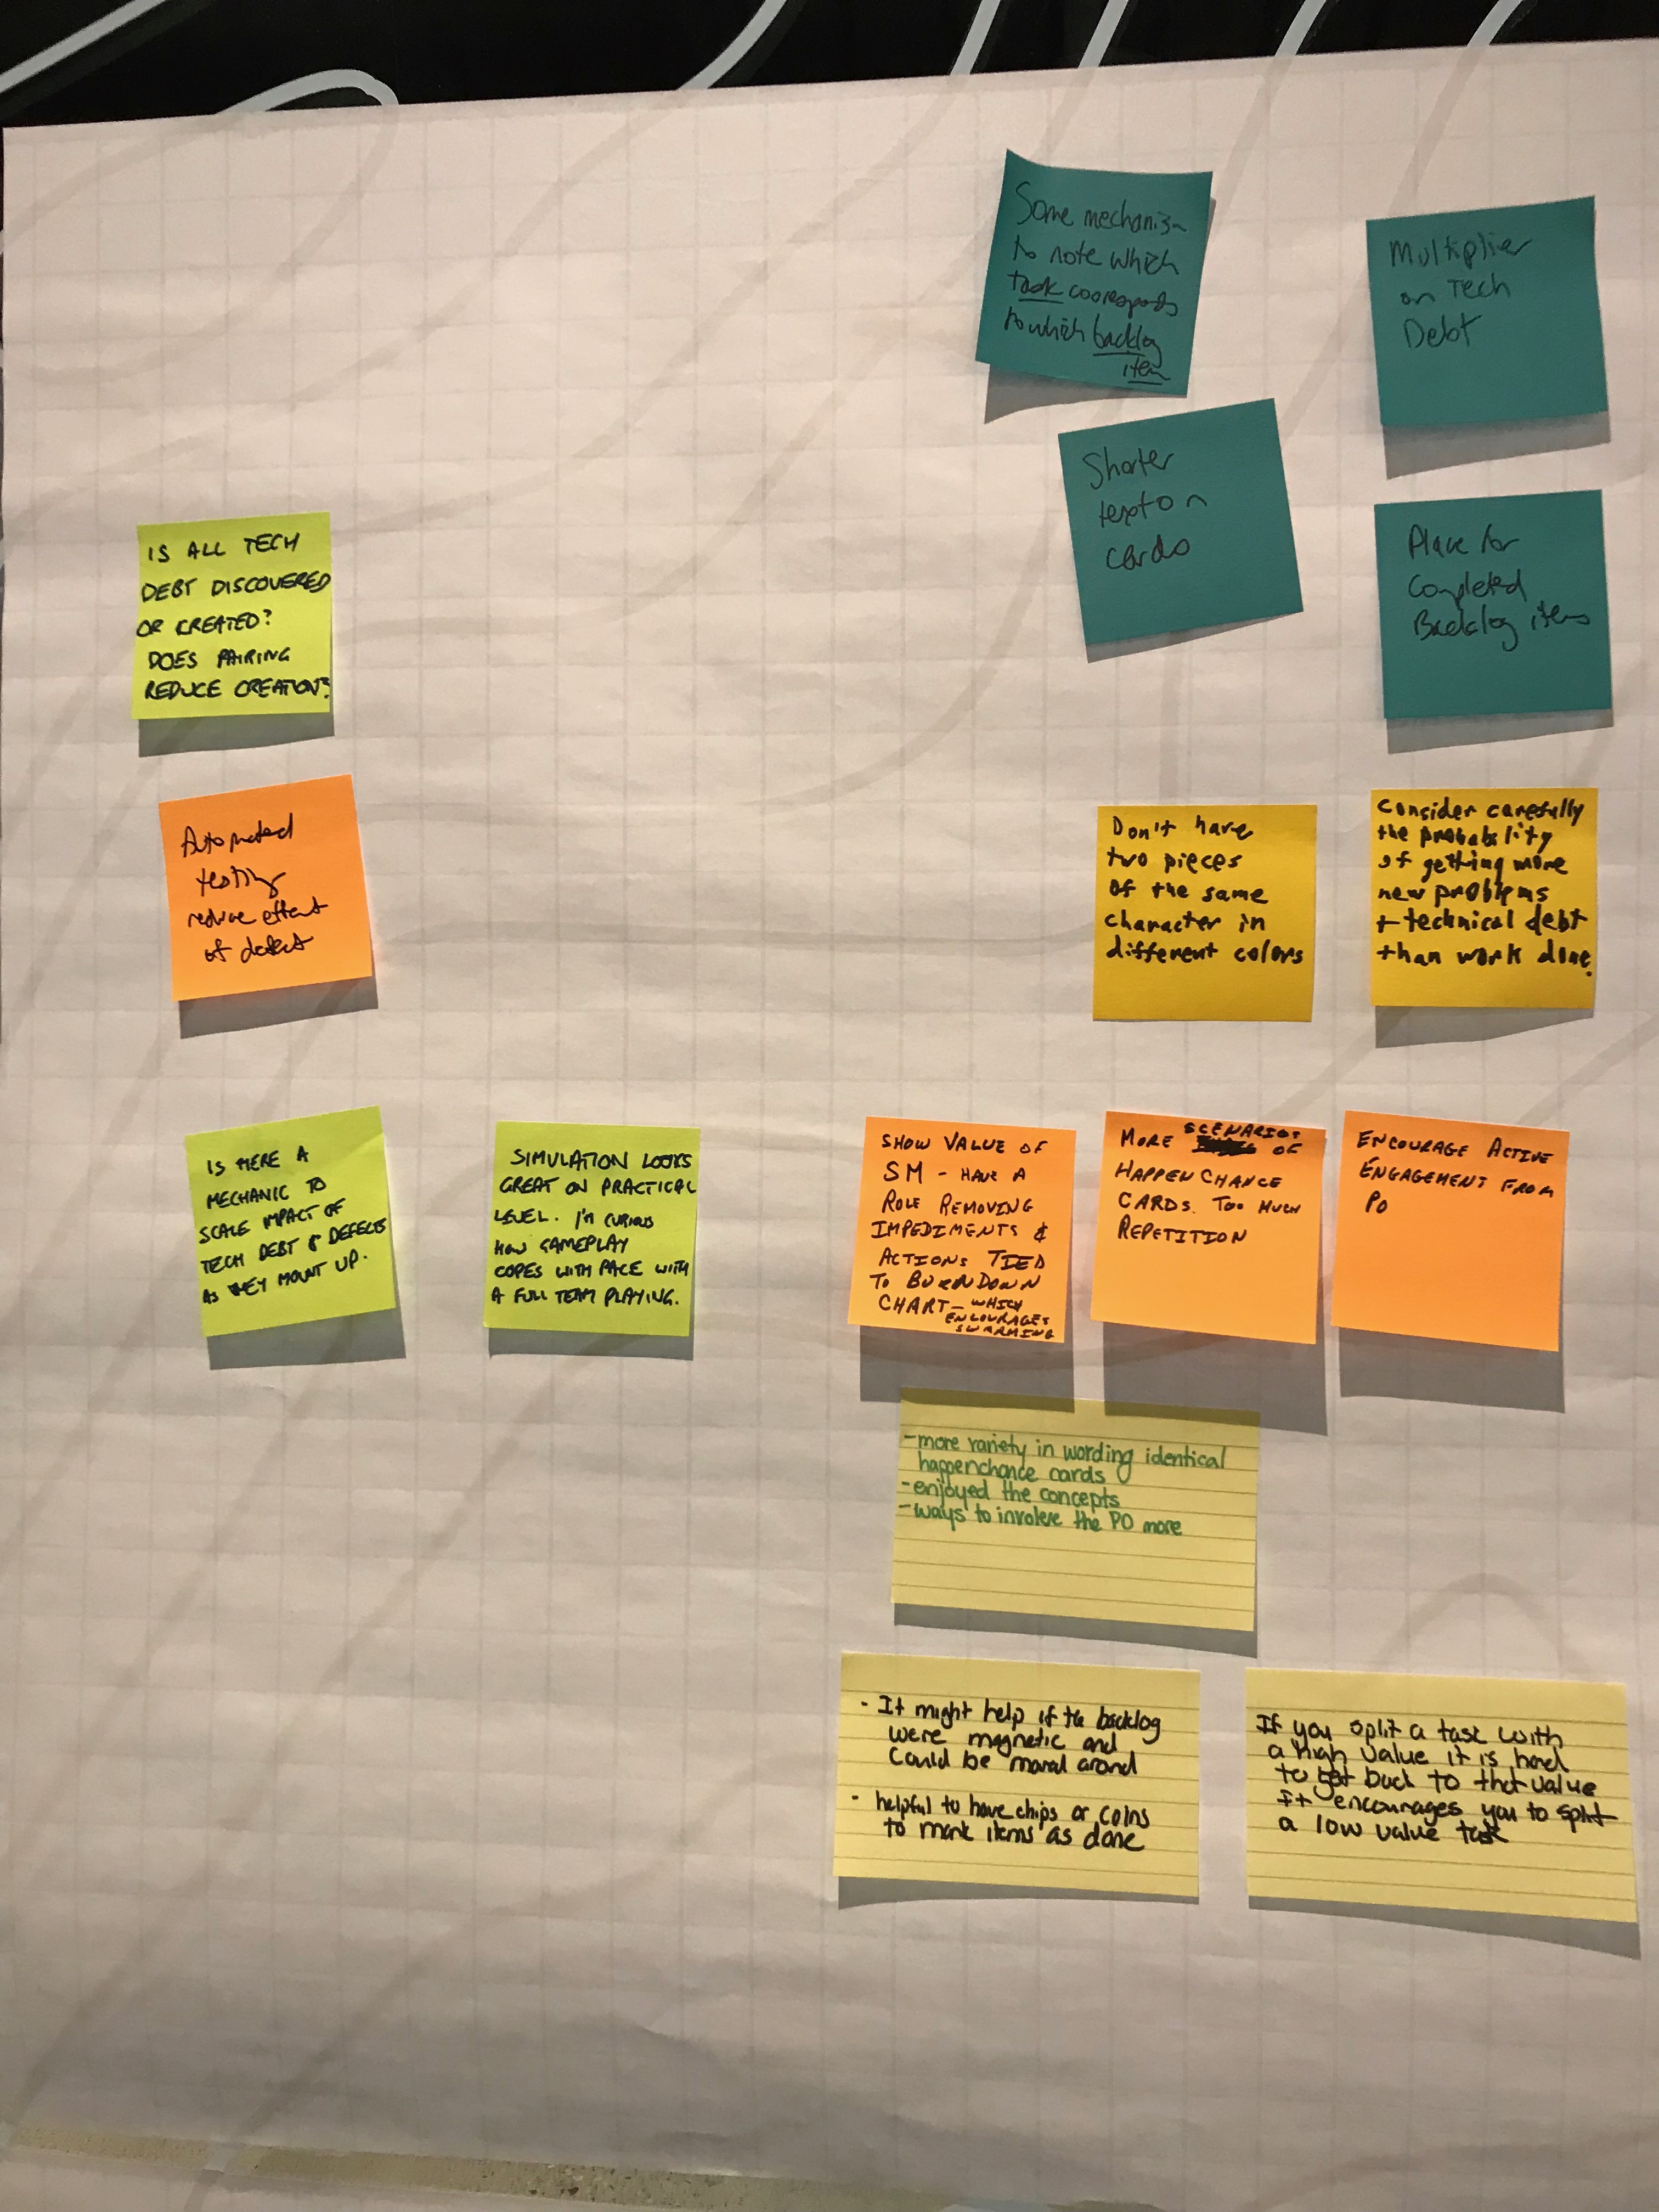 Some mechanism
to note which
task cooresponds
to which backlog
item
Multiplier
on Tech
Debt
Shorter
text on
cards
Place for
Completed
Backlog items
IS ALL TECH
DEBT DISCOVERED
OR CREATED?
DOES PAIRING
REDUCE CREATION?
Automated
testing
reduce effect
of defect
Don't have
two pieces
of the same
character in
different colors
Consider carefully
the probability
of getting more
new problems
+ technical debt
than work done.
IS HERE A
MECHANIC TO
SCALE IMPACT OF
TECH DEBT & DEFECTS
AS THEY MOUNT UP.
SIMULATION LOOKS
GREAT ON PRACTICAL
LEVEL. I'M CURIOUS
HOW GAMEPLAY
COPES WITH PACE WITH
A FULL TEAM PLAYING.
SHOW VALUE OF
SM - HAVE A
ROLE REMOVING
IMPEDIMENTS &
ACTIONS TIED
TO BURNDOWN
CHART - WHICH
ENCOURAGES
SWARMING
MORE SCENARIOS OF
HAPPENCHANCE
CARDS. TOO MUCH
REPETITION
ENCOURAGE ACTIVE
ENGAGEMENT FROM
PO
- more variety in wording identical
happenchance cards
- enjoyed the concepts
- ways to involve the PO more
- It might help if the backlog
were magnetic and
could be moved around
- helpful to have chips or coins
to mark items as done
If you split a task with
a high value it is hard
to get back to that value
It encourages you to split
a low value task